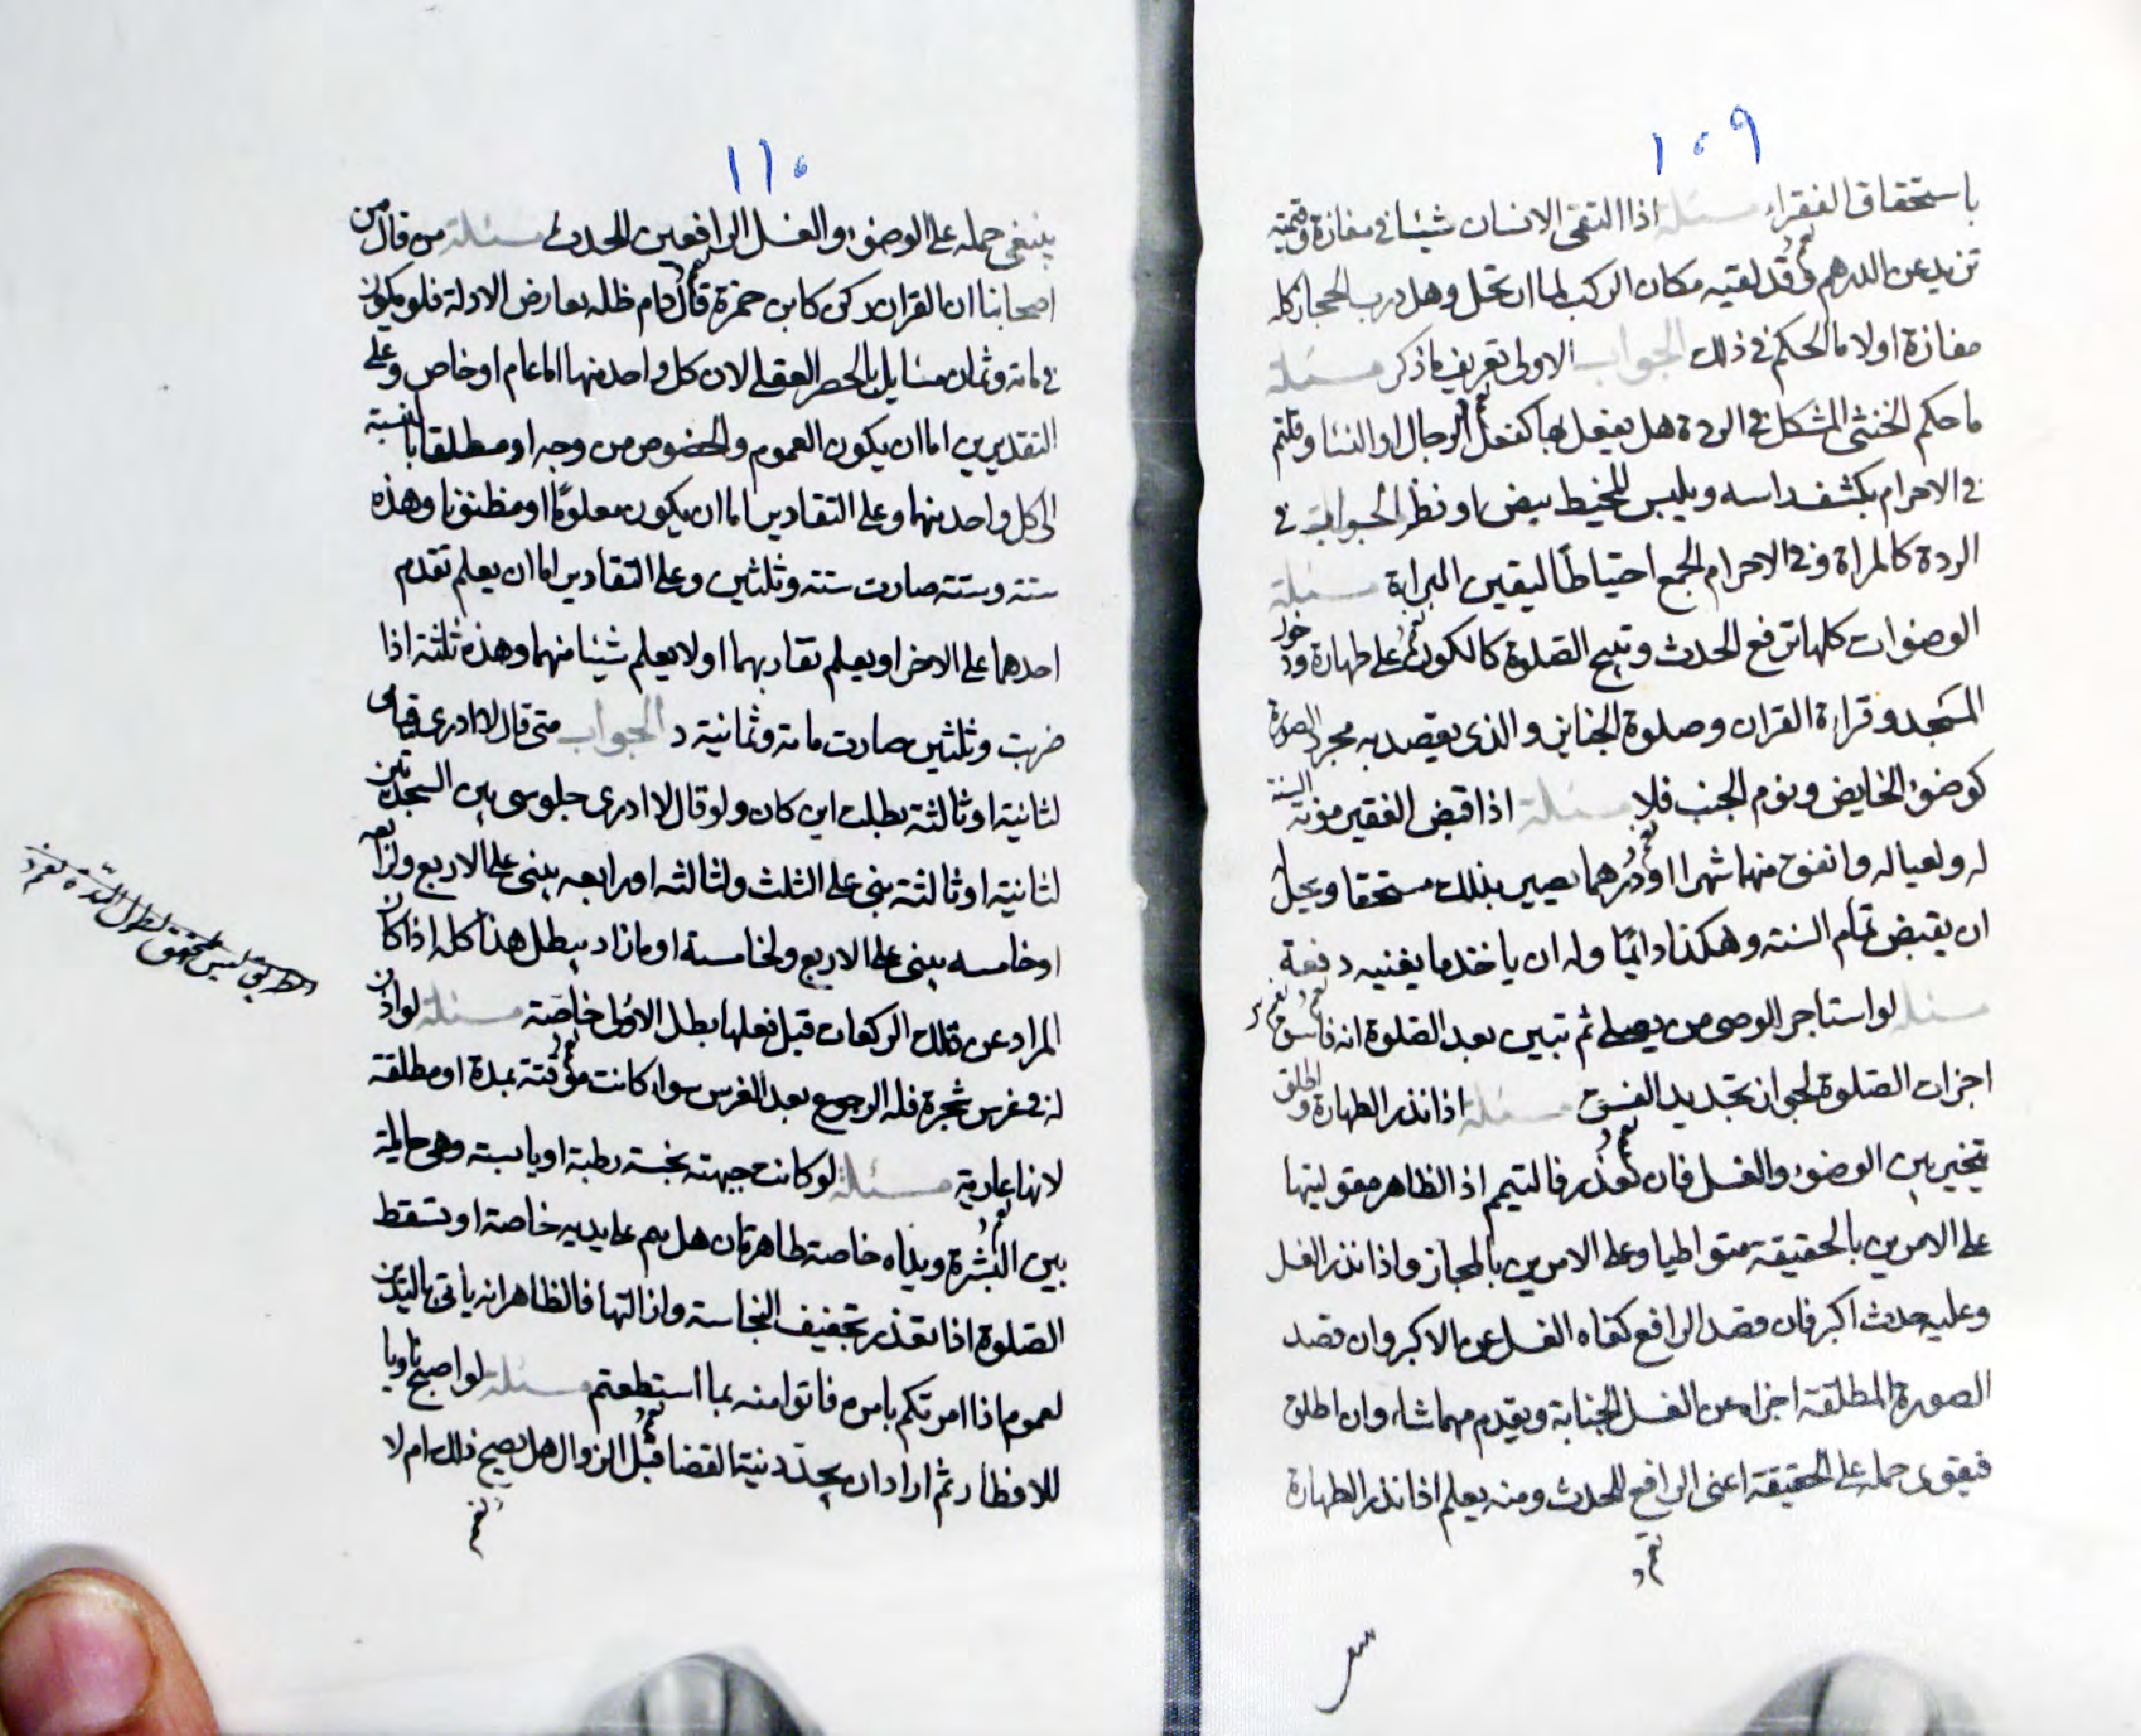 ١٠٩
باستحقاق الفقراء مسئلة اذا التقى الانسان شيئا في مفازة وقيمته
تزيد عن الدرهم وقد لقيه مكان الركب لما ان تحل وهل درب الحجاز كله
مفازة اولا ما الحكم في ذلك الجواب الاولى تعريف ما ذكر مسئلة
ما حكم الخنثى المشكل في الردة هل يفعل بها كفعل الرجال او النسا وقلتم
في الاحرام يكشف راسه ويلبس المخيط بيض او نظر الجواب في
الردة كالمراة وفي الاحرام الجمع احتياطا ليقين البراية مسئلة
الوضوات كلها ترفع الحدث وتبيح الصلوة كالكون على طهارة ودخول
المسجد وقراءة القران وصلوة الجنايز والذى يقصد به مجرد الصورة
كوضوء الحايض ونوم الجنب فلا مسئلة اذا قبض الفقير مونة السنة
له ولعياله وانفق منها شهرا او درهما يصير بذلك مستحقا ويحل له
ان يقبض تمام السنة وهكذا دائما وله ان ياخذ ما يغنيه دفعة
مسئلة لو استاجر الوصى من يصلي ثم تبين بعد الصلوة انه فاسق
اجزات الصلوة لجواز تجديد الفسق مسئلة اذا نذر الطهارة واطلق
يتخير بين الوضوء والغسل فان تعذر فالتيمم اذ الظاهر مقوليتها
على الامرين بالحقيقة متواطيا وعلى الامرين بالمجاز واذا نذر الغسل
وعليه حدث اكبر فان قصد الرافع كفاه الغسل عن الاكبر وان قصد
الصورة المطلقة اجزاه عن الغسل الجنابة ويقدم مهما شاء وان اطلق
فيقوى حمله على الحقيقة اعنى الرافع للحدث ومنه يعلم اذا نذر الطهارة
١١٠
ينبغي حمله على الوضوء والغسل الرافعين الحدث مسئلة من قال من
اصحابنا ان القران ركن كابن حمزة قال دام ظله تعارض الادلة فلو يكون
في مائة وثمان مسايل بالحصر العقلي لان كل واحد منها اما عام او خاص وعلى
التقديرين اما ان يكون العموم والخصوص من وجه او مطلقا بالنسبة
الى كل واحد منهما وعلى التقادير اما ان يكون معلوما او مظنونا وهذه
ستة وستة صارت ستة وثلثين وعلى التقادير اما ان يعلم تقدم
احدهما على الاخر او يعلم تقاربهما او لا يعلم شيئا منهما وهذه ثلثة اذا
ضربت وثلثين صارت مائة وثمانية د الجواب متى قال لا ادرى قيامى
لثانية او ثالثة بطلت اين كان ولو قال لا ادرى جلوسى بين السجدتين
لثانية او ثالثة بنى على الثلث ولثالثه او رابعه يبنى على الاربع ولرابعه
او خامسه يبنى على الاربع ولخامسة او ما زاد يبطل هذا كله اذا كان
المراد عن تلك الركعات قبل فعلها بطل الاولى خاصة مسئلة لو اذن
له في غرس شجرة فله الرجوع بعد الغرس سواء كانت موقتة بمدة او مطلقة
لانها عارية مسئلة لو كانت جبهته نجسة رطبة او يابسة وهى حايلة
بين البشرة ويداه خاصة طاهرتان هل يتيمم على يديه خاصة او تسقط
الصلوة اذا تعذر تجفيف النجاسة وازالتها فالظاهر انه ياتى باليدين
لعموم اذا امرتكم بامر فاتوا منه بما استطعتم مسئلة لو اصبح ناويا
للافطار ثم اراد ان يجدد نية القضا قبل الزوال هل يصح ذلك ام لا